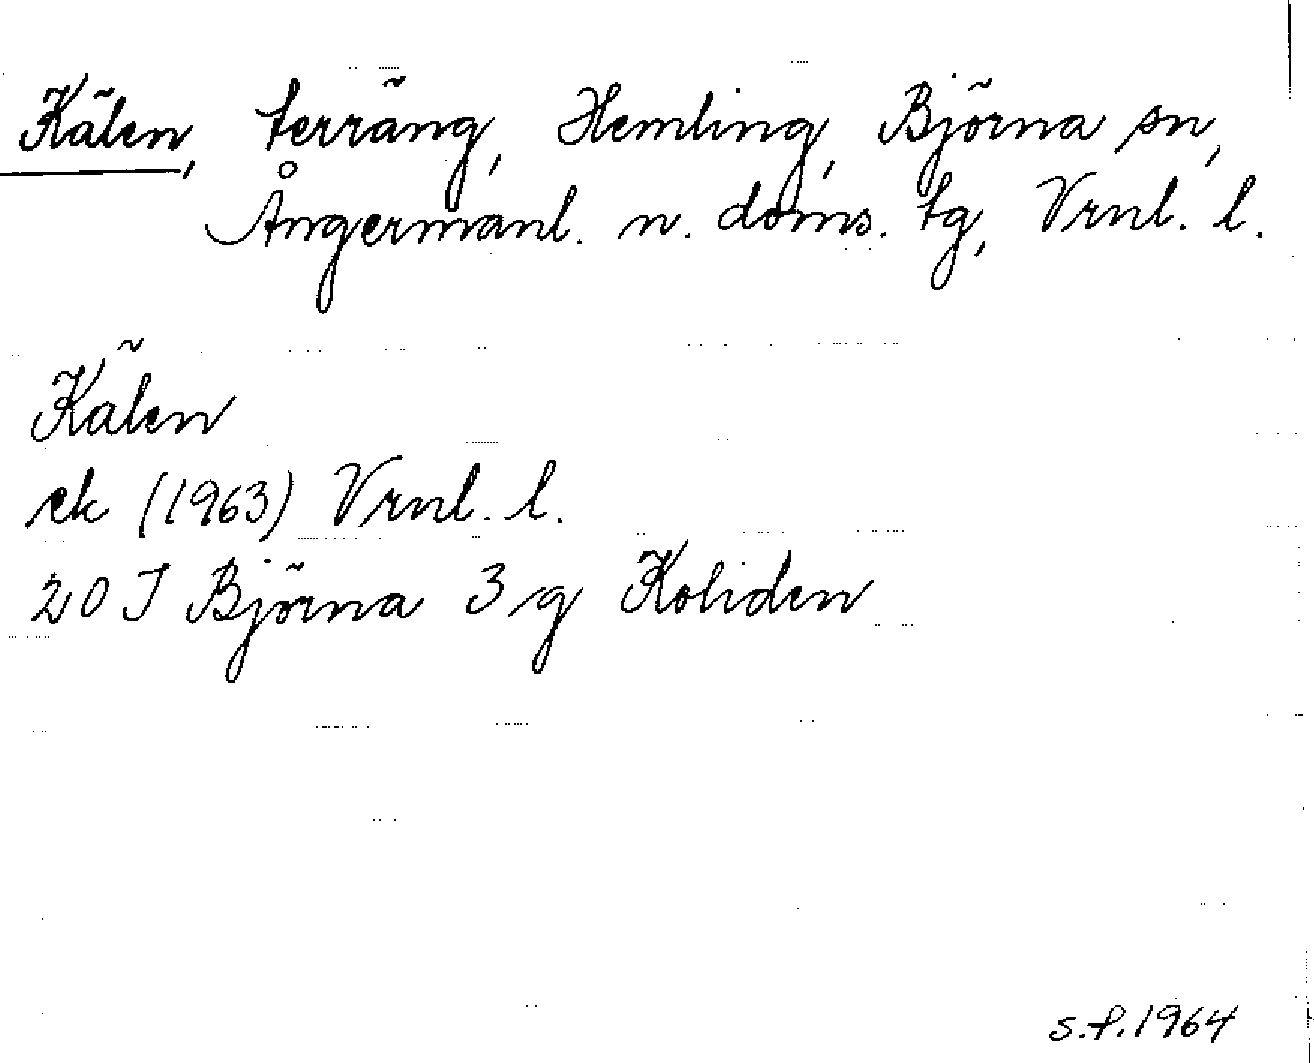 Kälen, terräng, Hemling, Björna sn,
Ångermanl. n. doms. tg, Vrnl. l.
Kälen
ek (1963) Vrnl. l.
20 J Björna 3 g Koliden
s.f. 1964